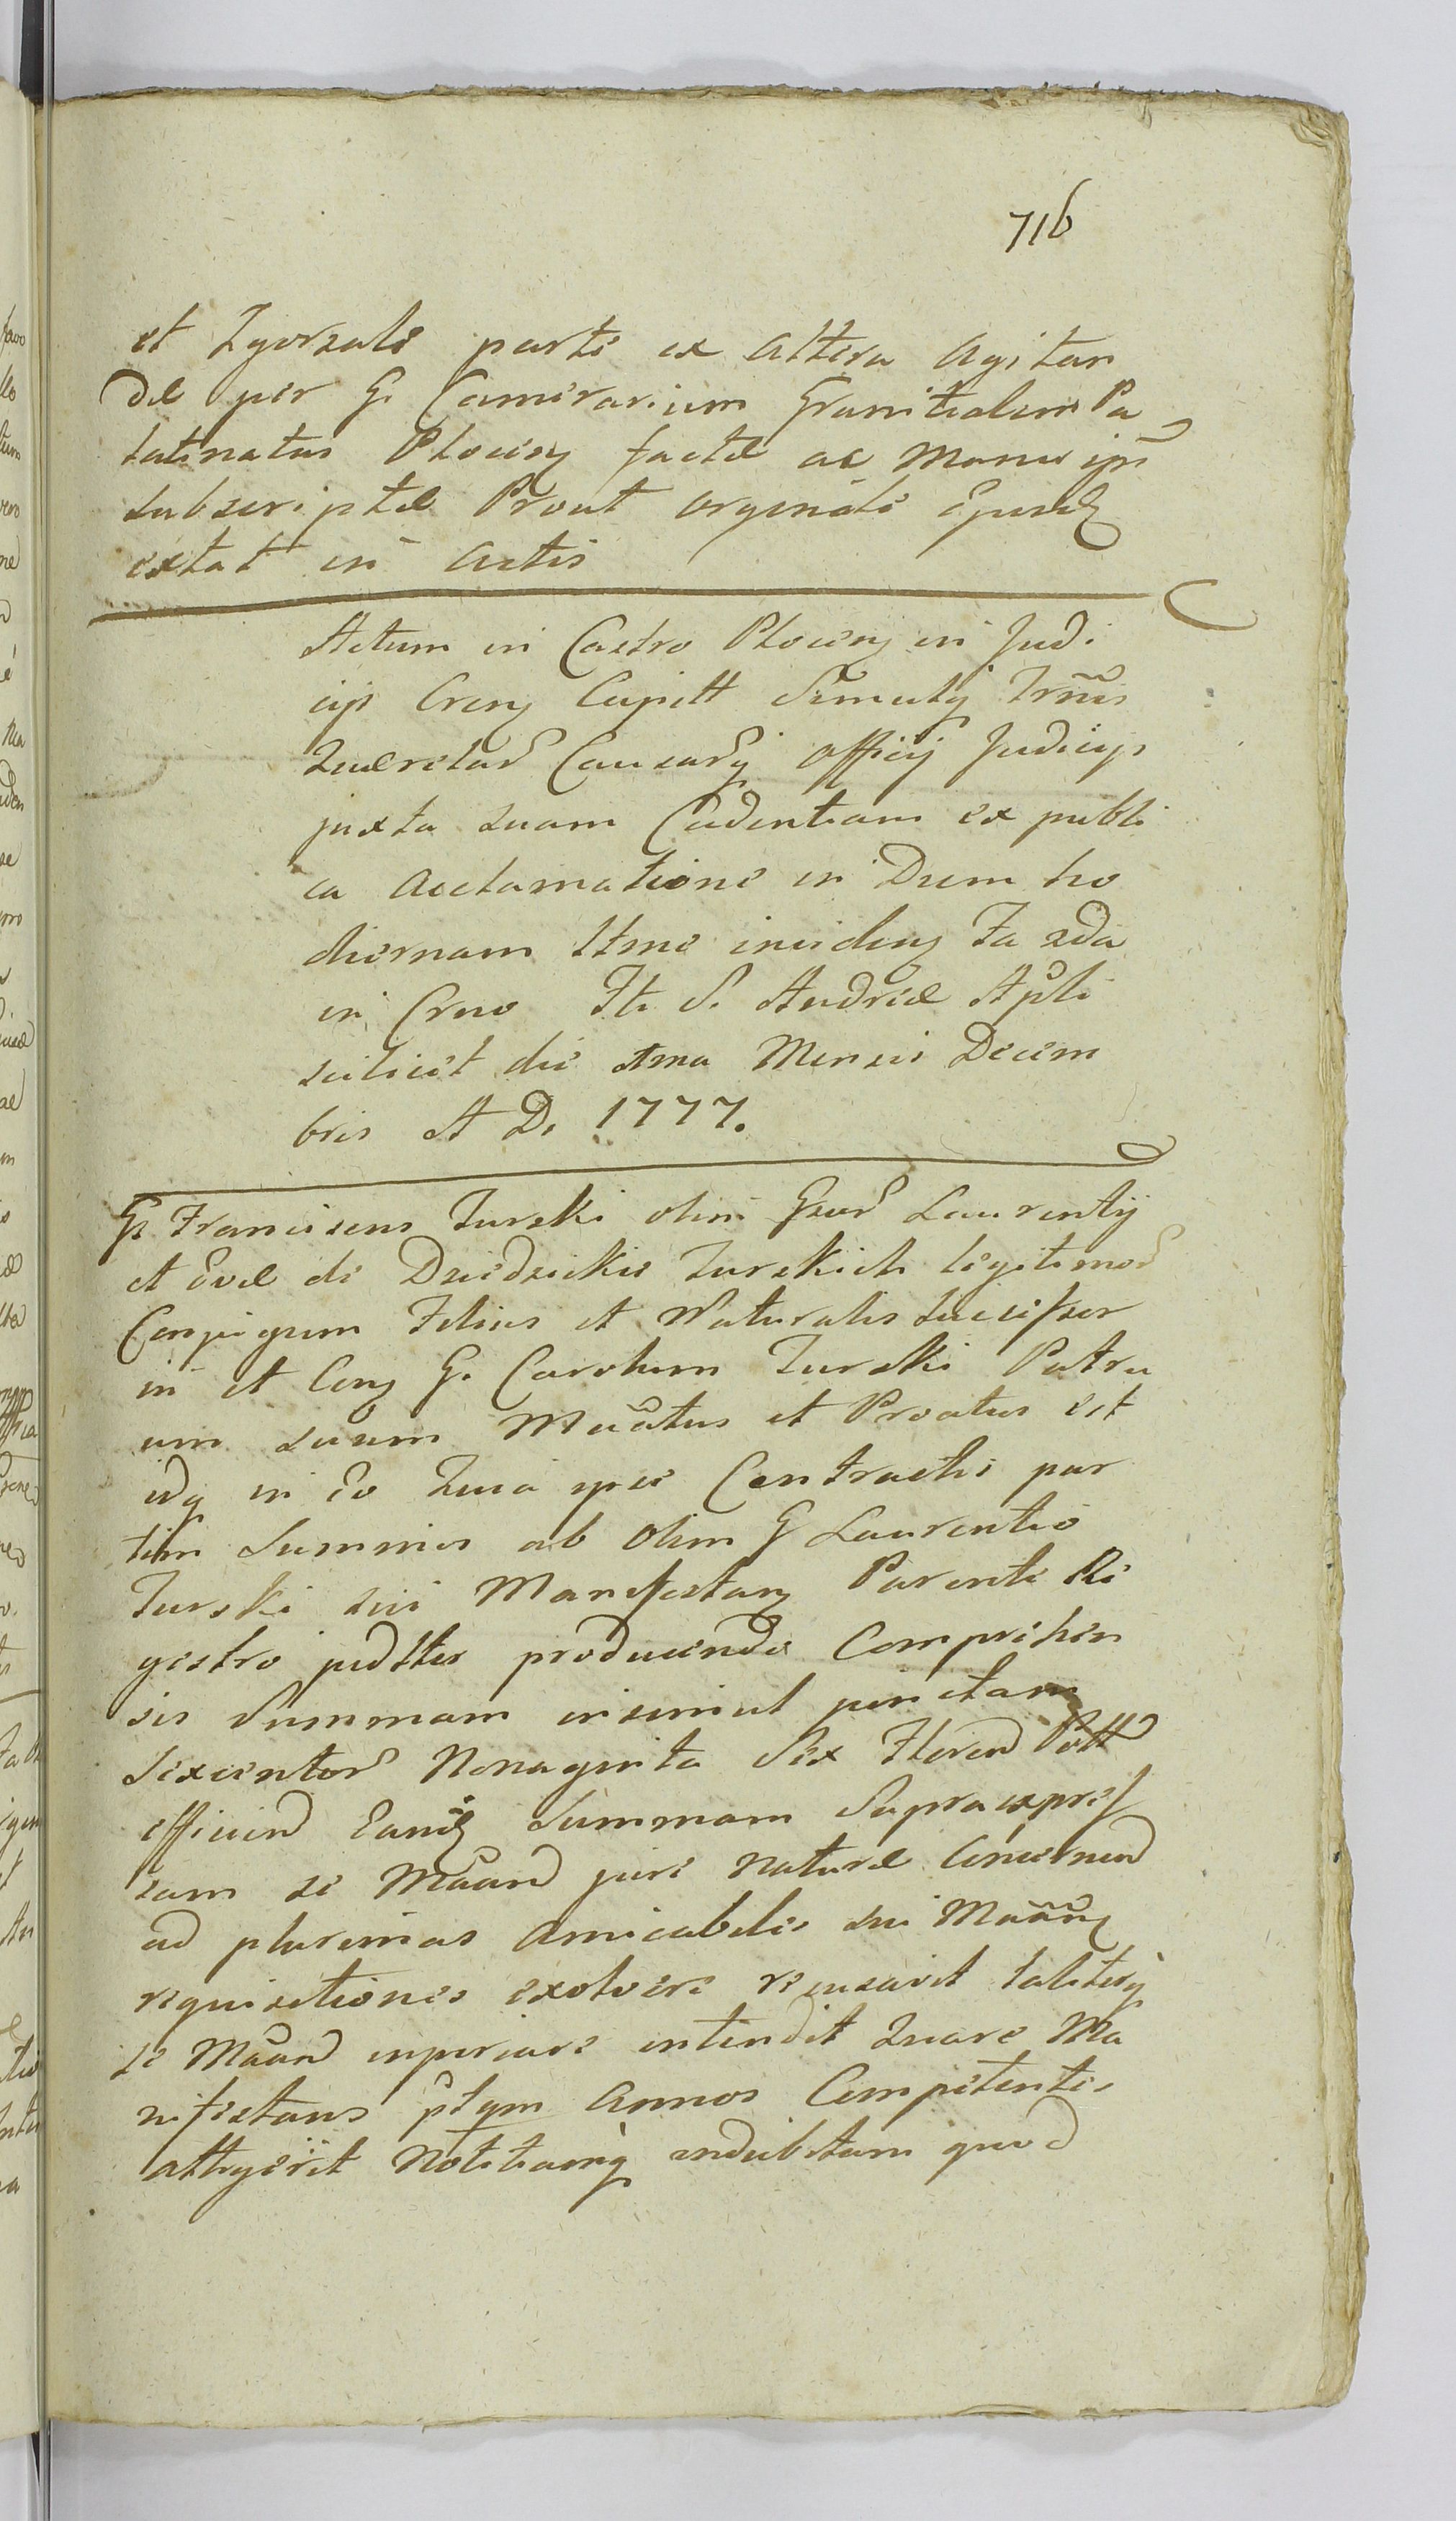 716
et Zgorzale parte ex altera agitan
dae per G. Camerarium Granitialem Pa
latinatus Plocens factae ac Manu ips
subscriptae Prout orginale Ejusd
extat in actis
Actum in Castro Plocens in Judi
cijs Crens Capitt Simulq
Querelar Causarq officij Judicijs
juxta suam Cadentiam ex publi
ca acclamatione in Diem ho
diernam ltme incidens Fa 2da
in Crno Fti S. Andreae Apli
scilicet die 1ma Mensis Decem
bris A D. 1777.
G. Franciscus Turski olim Gsor Laurentij
et Evae de Dziedzickie Turskich legitimor
Conjugum Filius et Naturalis Successor
in et Cons G. Carolum Turski Patru
um suum Mtus et Protus est
idq in eo Quia ipse Contractis par
tim Summis ab olim G Laurentio
Turski sui Manifestans Parente Re
gestro judlter producendo Comprehen
sis Summam insimul junctam
Sexcentor Nonaginta Sex Floren Poll
efficien Eand Summam Supraexpres
sam se Maan jure naturae Concernen
ad plurimas amicabiles sui Maans
requisitiones exolvere recusavit taliterq
se Maan injuriare intendit Quare Ma
nifestans ptqm annos Competentes
attigerit Notitiamq indubitam quod